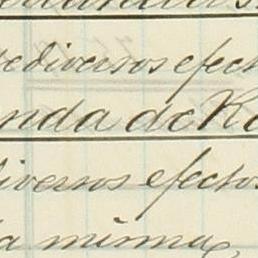 de diversos efect
nda de R
diversos efectos
la misma